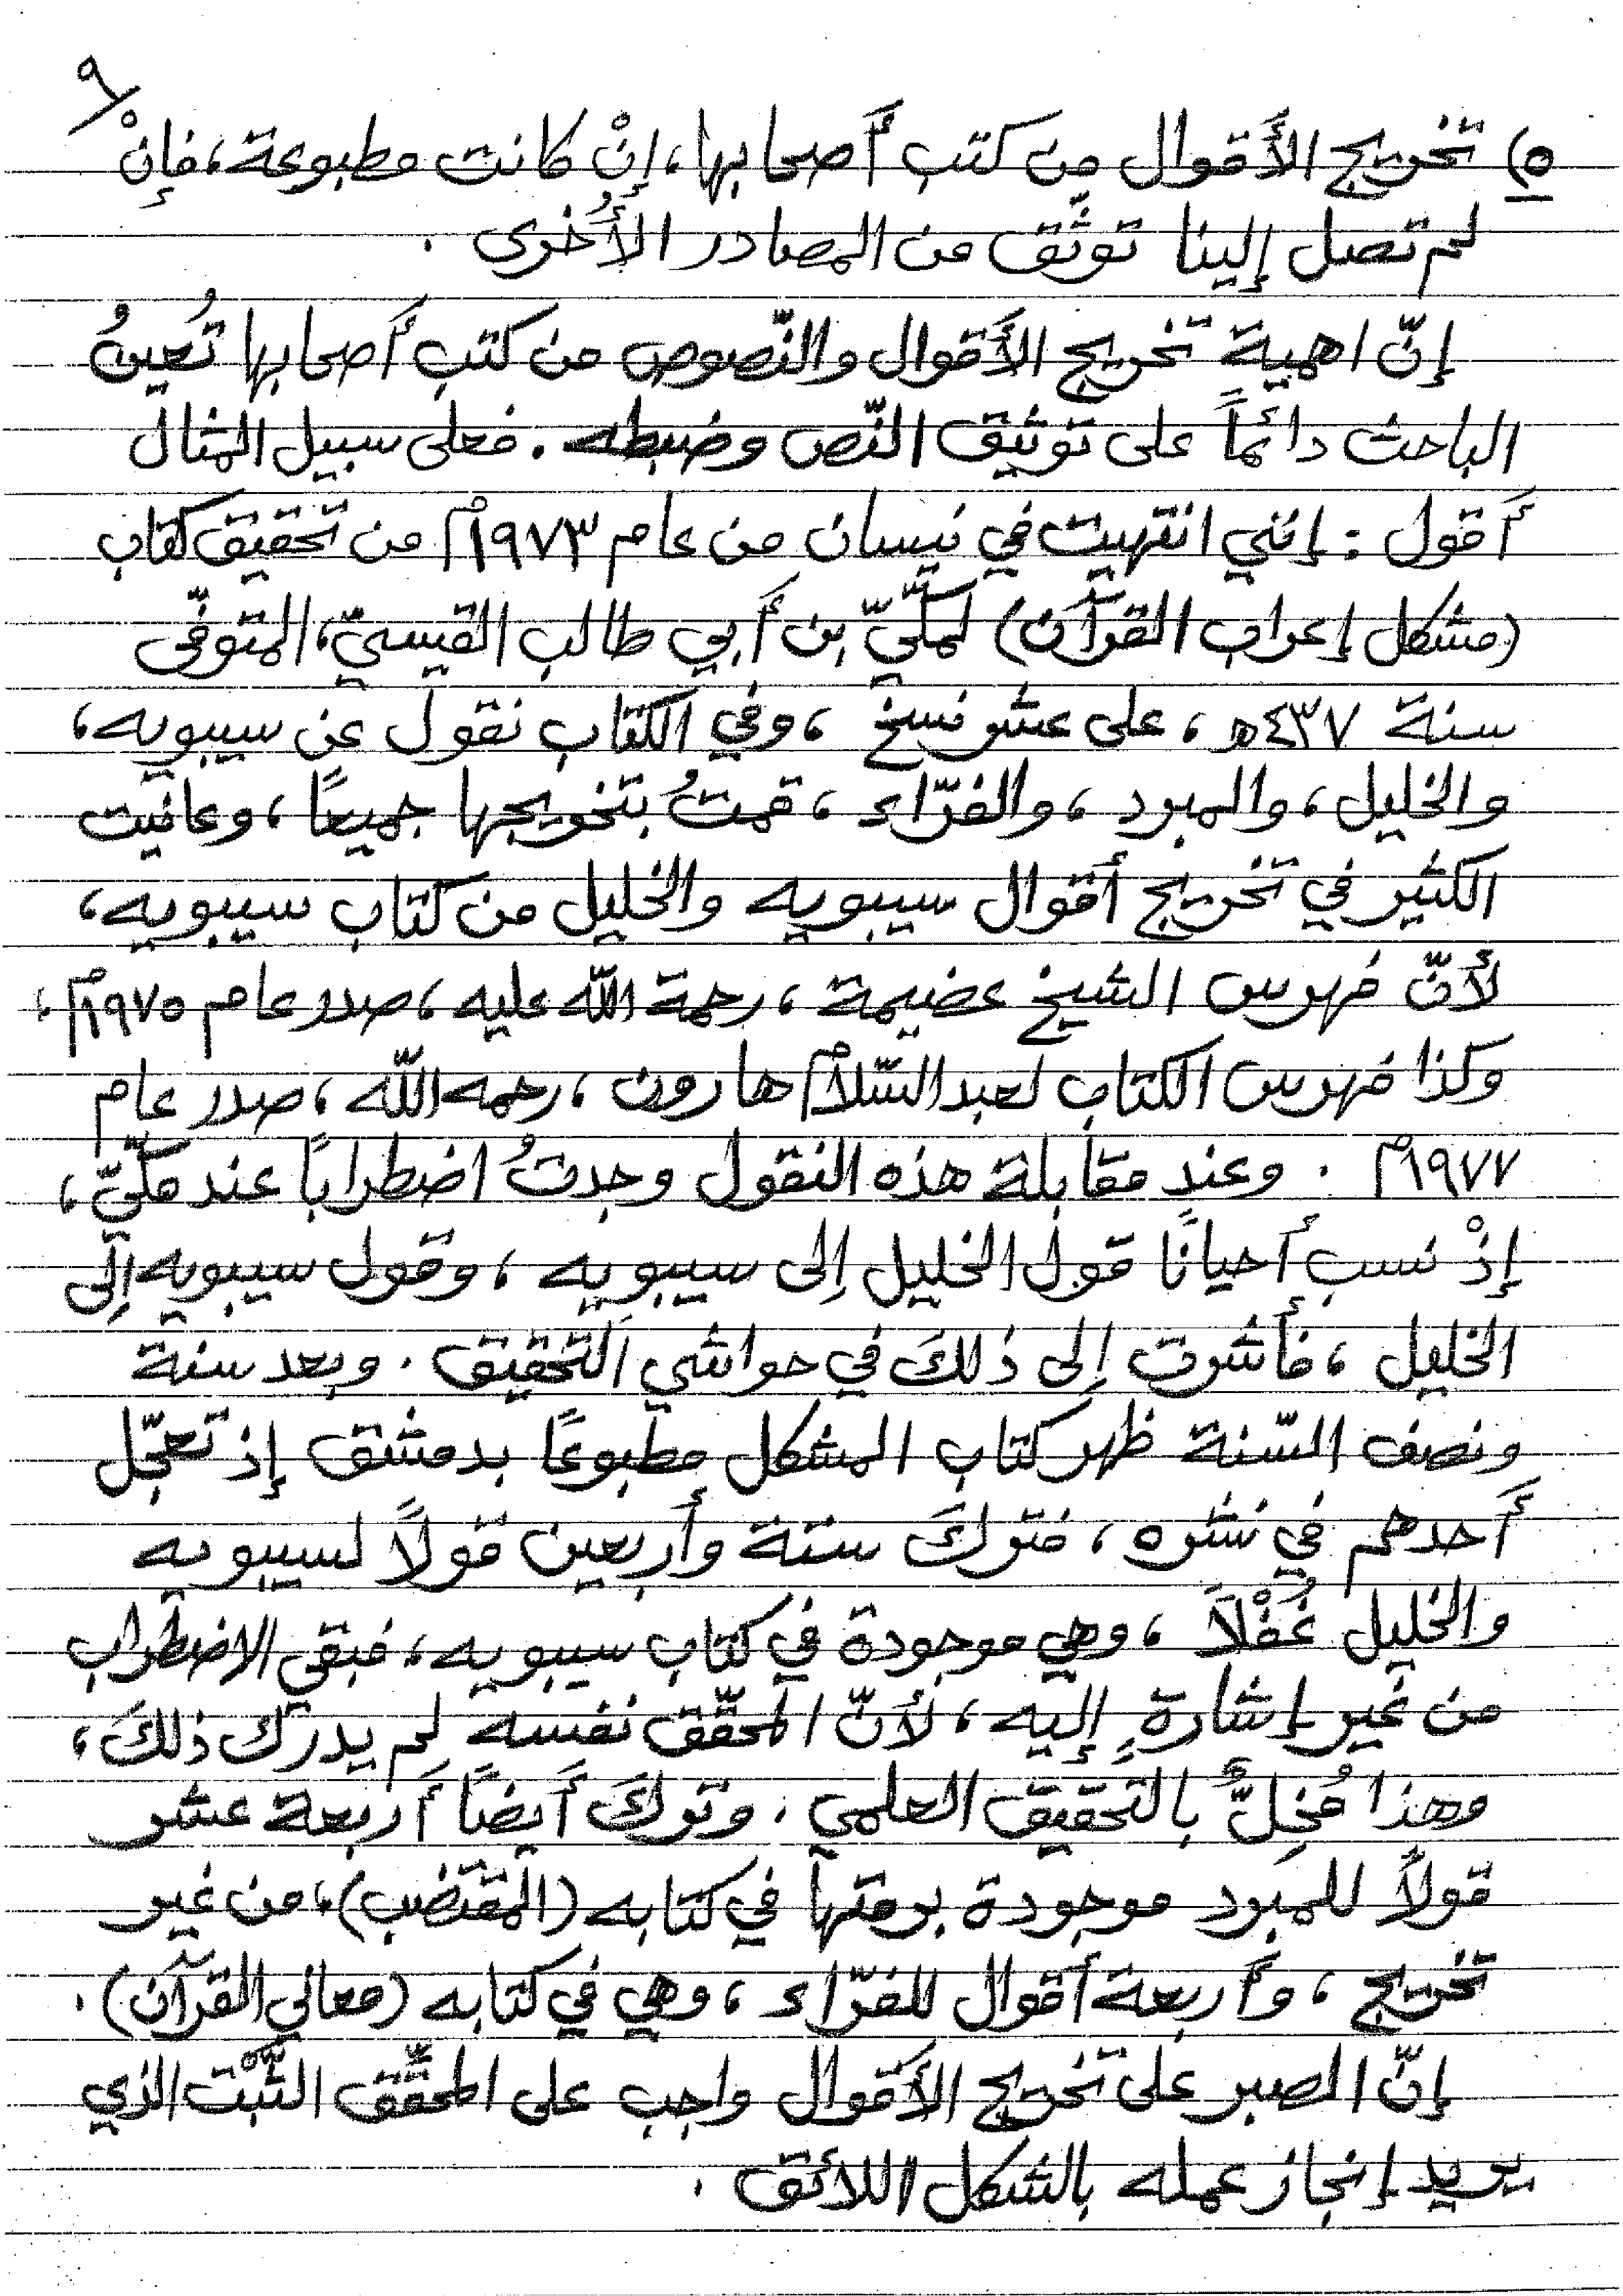 ٩
٥) تخريج الأَقوال من كتب أَصحابها، إنْ كانت مطبوعة، فإنْ
لم تصل إلينا توثَّق من المصادر الأُخرى .
إنّ اهمية تخريج الأَقوال والنّصوص من كتب أَصحابها تُعينُ
الباحث دائماً على توثيق النّص وضبطه . فعلى سبيل المثال
أَقول : إنني انتهيت في نيسان من عام ١٩٧٣م من تحقيق كتاب
(مشكل إعراب القرآن) لمكّيّ بن أَبي طالب القيسيّ، المتوفّى
سنة ٤٣٧هـ ، على عشر نسخ ، وفي الكتاب نقول عن سيبويه،
والخليل ، والمبرد ، والفرّاء ، قمتُ بتخريجها جميعاً ، وعانيت
الكثير في تخريج أَقوال سيبويه والخليل من كتاب سيبويه،
لأَنّ فهرس الشيخ عضيمة ، رحمة اللّه عليه ، صدر عام ١٩٧٥م ،
وكذا فهرس الكتاب لعبد السّلام هارون ، رحمه اللّه ، صدر عام
١٩٧٧م . وعند مقابلة هذه النقول وجدتُ اضطراباً عند مكّيّ ،
إذْ نسب أَحياناً قول الخليل إلى سيبويه ، وقول سيبويه إلى
الخليل ، فأَشرت إلى ذلكَ في حواشي التحقيق . وبعد سنة
ونصف السّنة ظهر كتاب المشكل مطبوعاً بدمشق إذ تعجّل
أَحدهم في نشره ، فتركَ ستة وأَربعين قولاً لسيبويه
والخليل غُفْلاً ، وهي موجودة في كتاب سيبويه، فبقي الاضطراب
من غير إشارةٍ إليه ، لأَنّ المحقّق نفسه لم يدرك ذلكَ ،
وهذا مُخِلٌّ بالتحقيق العلمي . وتركَ أَيضاً أَربعة عشر
قولاً للمبرد موجودة برمتها في كتابه (المقتضب)، من غير
تخريج ، وأَربعة أَقوال للفرّاء ، وهي في كتابه (معاني القرآن) .
إنّ الصبر على تخريج الأَقوال واجب على المحقِّق الثَّبْت الذي
يريد إنجاز عمله بالشكل اللائق .